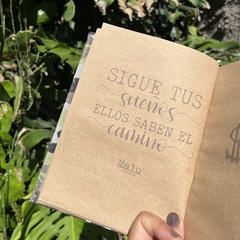 SIGUE TUS
sueños
ELLOS SABEN EL
camino
Malu
$